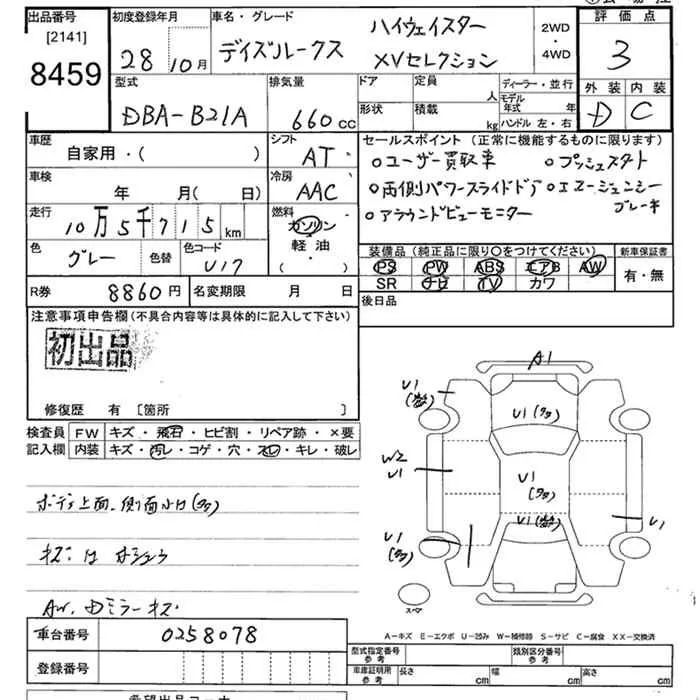 出品番号
[2141]
8459
初度登録年月
28年10月
車名・グレード
デイズルークス
ハイウェイスター
XVセレクション
2WD
・
4WD
評価点
3
外装 内装
D C
型式
DBA-B21A
排気量
660cc
ドア
形状
定員
人
積載
kg
ディーラー・並行
モデル年式 年
ハンドル 左・右
車歴
自家用・( )
シフト
AT
車検
年 月( 日)
冷房
AAC
走行
10万5千715km
燃料
ガソリン
軽油
( )
色
グレー
色替
色コード
U17
セールスポイント(正常に機能するものに限ります)
○ユーザー買取車 ○プッシュスタート
○両側パワースライドドア ○エマージェンシー
ブレーキ
○アラウンドビューモニター
装備品(純正品に限り○をつけてください)
PS PW ABS エアB AW
SR ナビ TV カワ
新車保証書
有・無
R券
8860円
名変期限 月 日
後日品
注意事項申告欄(不具合内容等は具体的に記入して下さい)
初出品
修復歴 有 [箇所 ]
検査員
記入欄
FW キズ・飛石・ヒビ割・リペア跡・×要
内装 キズ・汚レ・コゲ・穴・スレ・キレ・破レ
ボディ上面、側面小U(多)
AW、Dミラーキズ
A1
U1
U1(多)
W2
U1
U1
(多)
U1
U1
(多)
U1
スペア
A-キズ E-エクボ U-凹み W-補修跡 S-サビ C-腐食 XX-交換済
車台番号
0258078
登録番号
型式指定番号
参考
類別区分番号
参考
車庫証明用
参考
長さ cm 幅 cm 高さ cm